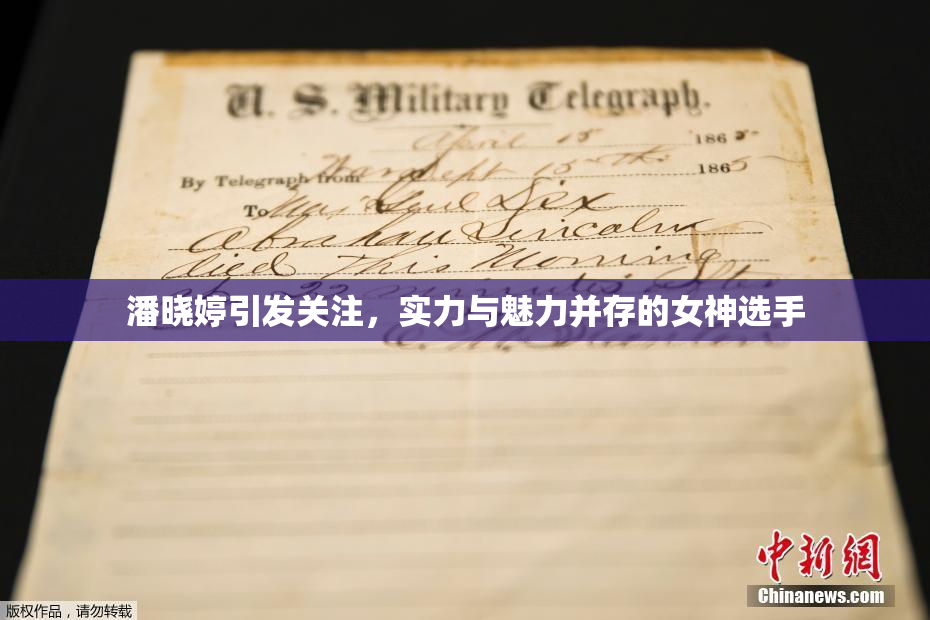 U. S. Military Telegraph.
April 15 1865
By Telegraph from War Dept 15th 1865
To Maj Genl Dix
Abraham Lincoln
died This Morning
at 22 minutes after
潘晓婷引发关注，实力与魅力并存的女神选手
E. M. Stanton
中新网
Chinanews.com
版权作品，请勿转载